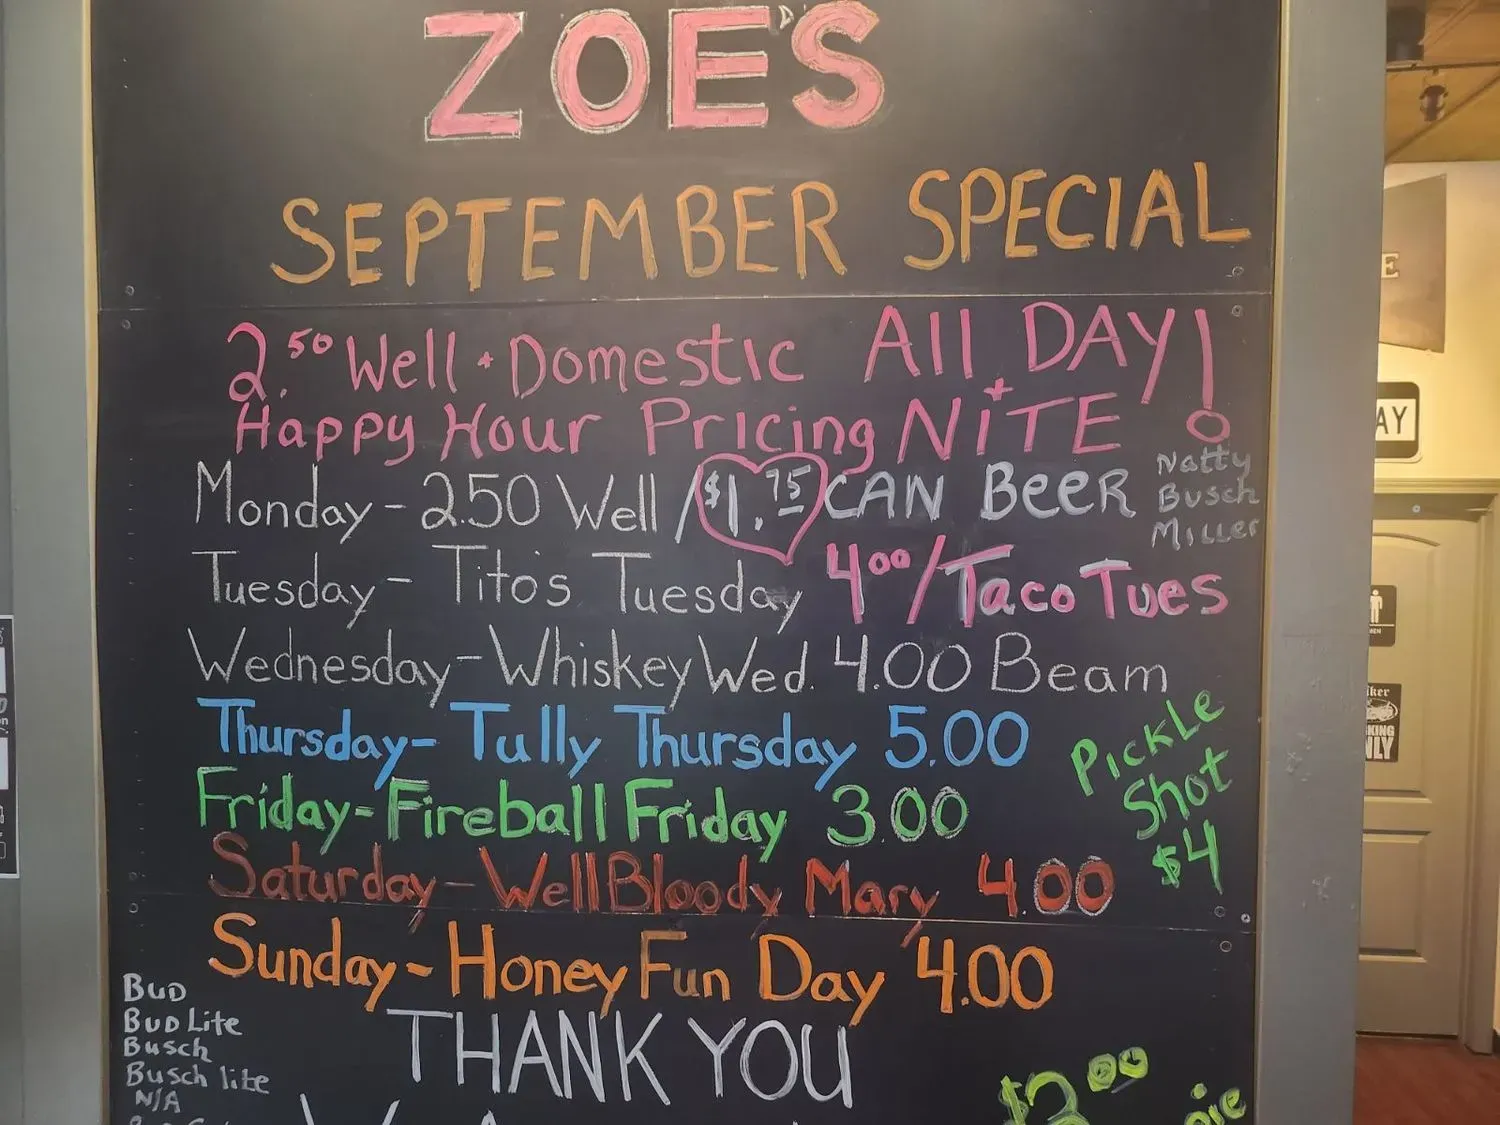 ZOE'S
SEPTEMBER SPECIAL
2.50 Well + Domestic All DAY + NiTE!
Happy Hour Pricing
Monday - 2.50 Well / $1.75 CAN BEER
Natty
Busch
Miller
Tuesday - Tito's Tuesday 4.00 / Taco Tues
Wednesday - Whiskey Wed. 4.00 Beam
Thursday - Tully Thursday 5.00
Friday - Fireball Friday 3.00
Pickle
Shot
$4
Saturday - Well Bloody Mary 4.00
Sunday - Honey Fun Day 4.00
BUD
BUD Lite
Busch
Busch lite
N/A
THANK YOU
$3.00
AY
MEN